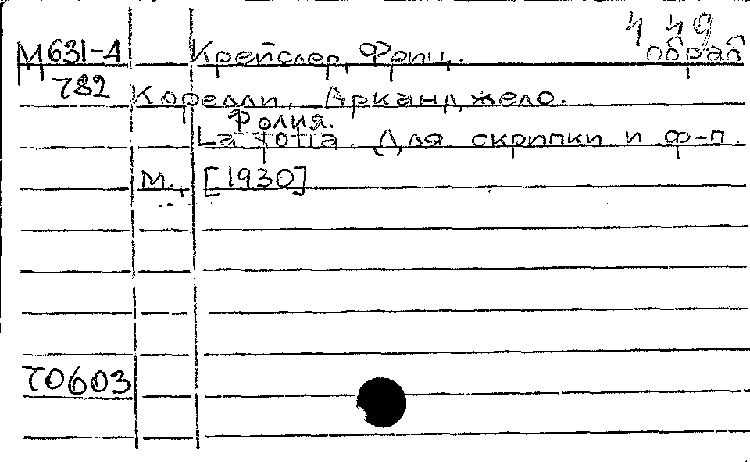 4 49
М631-4 Крейслер, Фриц. обраб
782 Корелли, Арканджело.
Фолия.
La Folia. Для скрипки и ф-п.
М., [1930]
70603